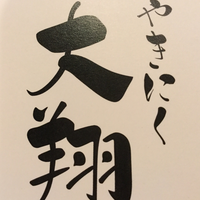 やきにく
大翔